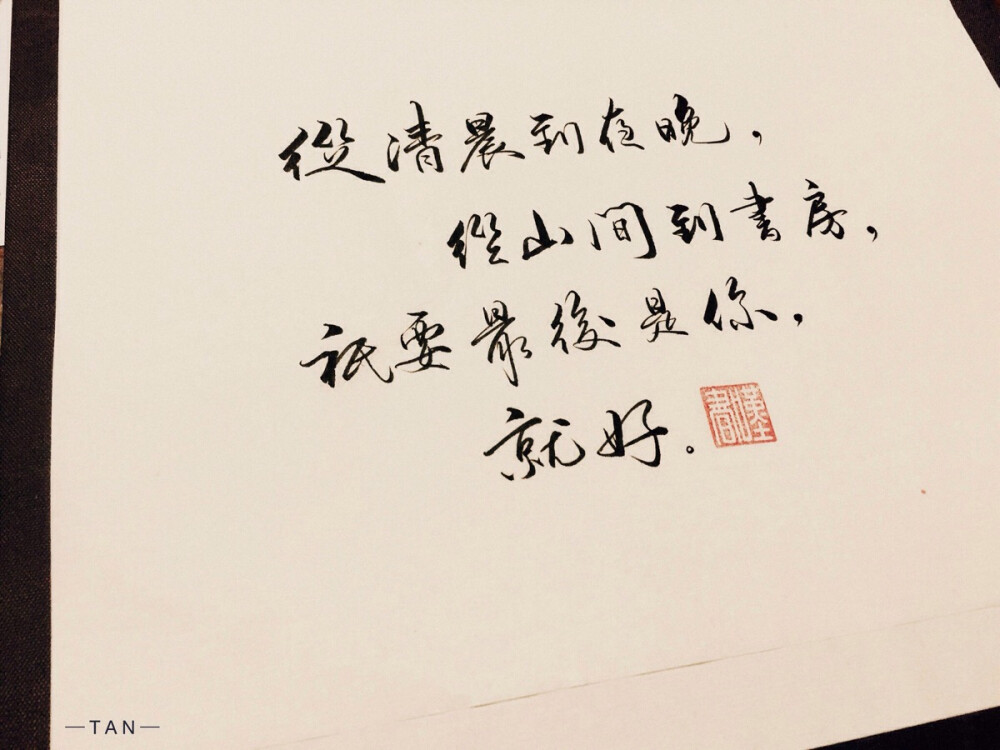 從清晨到夜晚，
從山間到書房，
祇要最後是你，
就好。
—TAN—